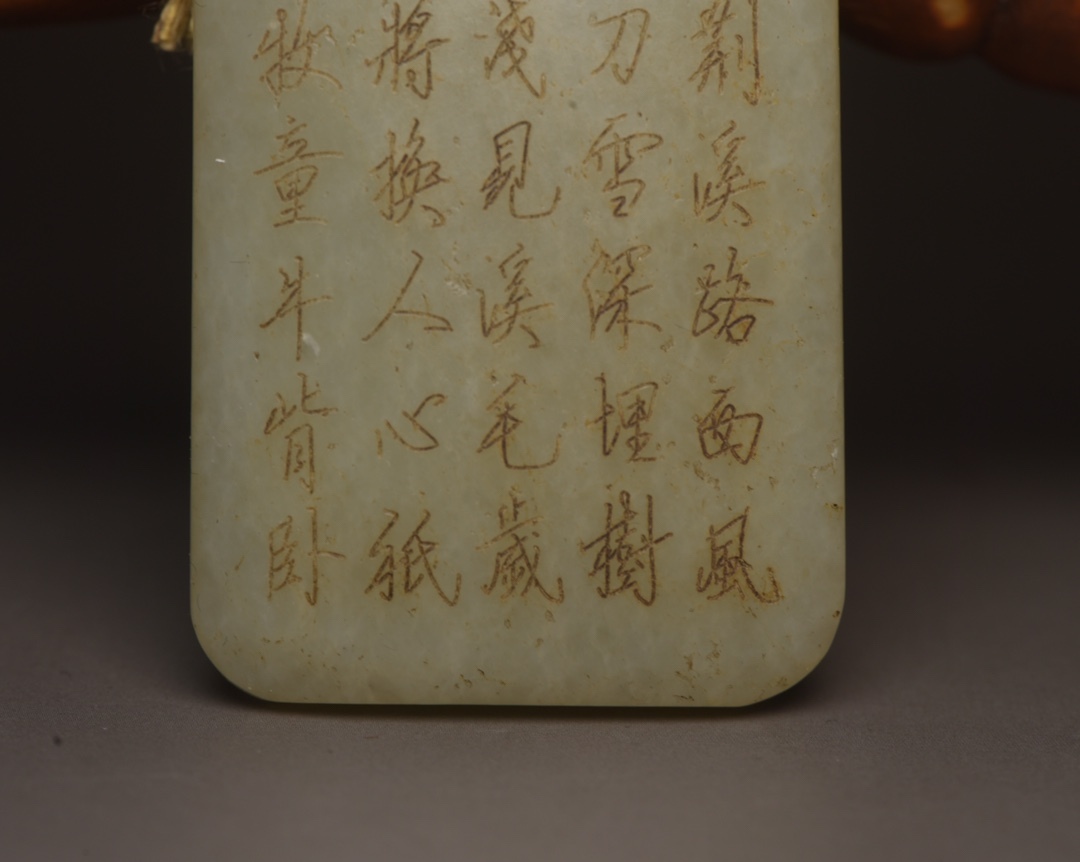 荆溪路西風
刀雪深埋樹
淺見溪毛歲
將換人心祇
牧童牛背卧